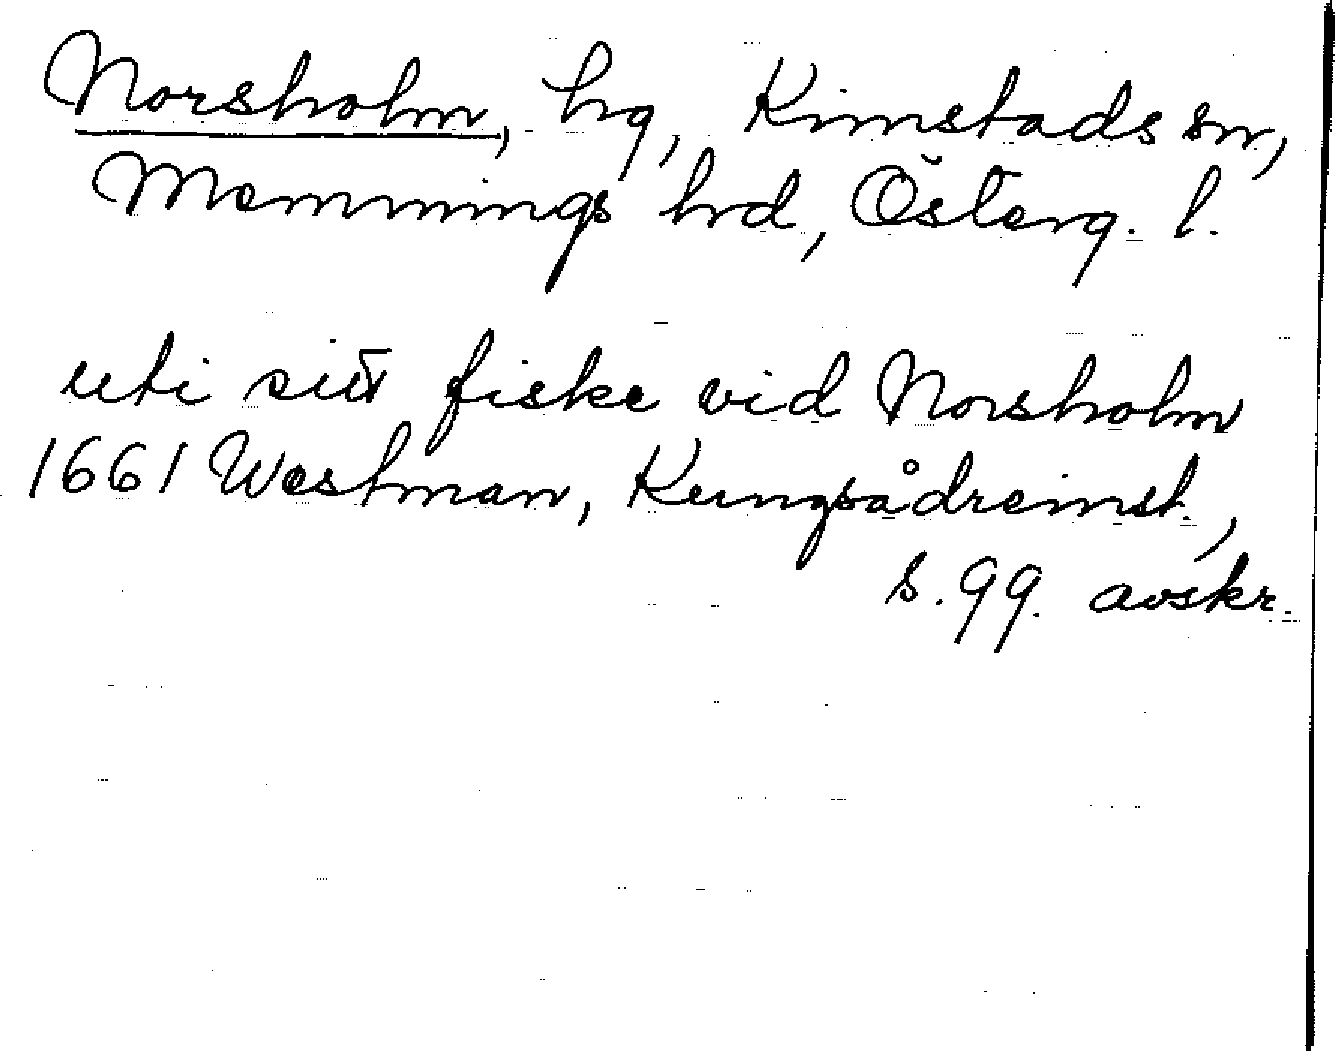 Norsholm, hg, Kimstads sn,
Memmings hrd, Österg. l.
uti sitt fiske vid Norsholm
1661 Westman, Kungsådreinst.,
s. 99. avskr.